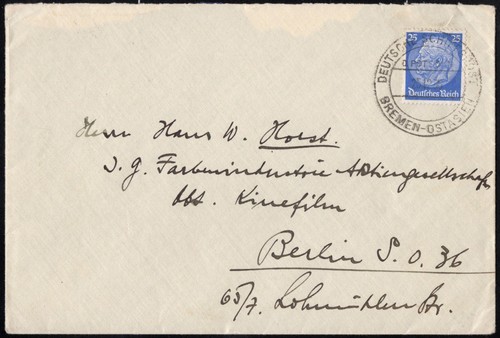 25 25
Deutsches Reich
DEUTSCHE
BREMEN-OSTASIEN
Herrn Hans W. Horst.
I. G. Farbenindustrie Aktiengesellschaft
Abt. Kinefilm
Berlin S. O. 36
65/7. Lohmühlen Str.